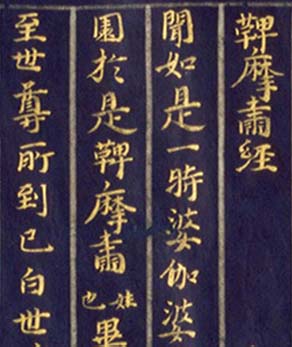 鞞摩肅經
聞如是一時婆伽婆
園於是鞞摩肅也姓異
至世尊所到已白世